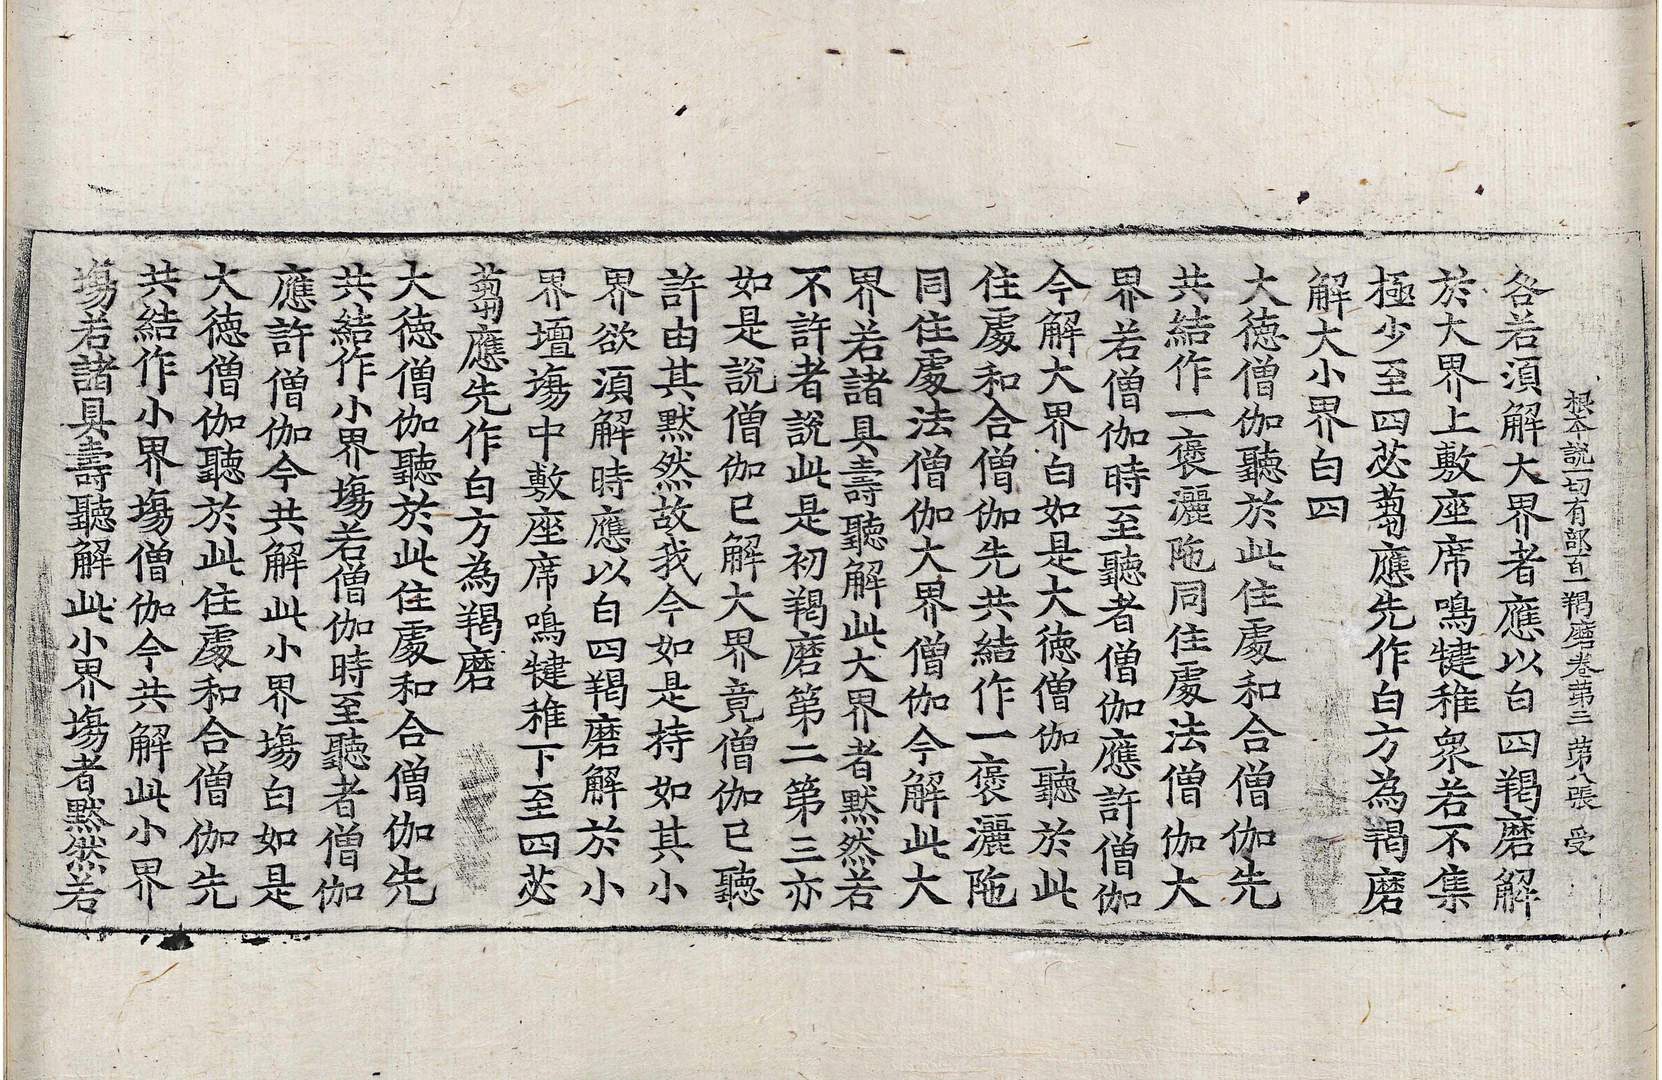 根本說一切有部百一羯磨卷第三 第八張 受
各若湏解大界者應以白四羯磨解
於大界上敷座席鳴犍稚衆若不集
極少至四苾蒭應先作白方為羯磨
解大小界白四
大德僧伽聽於此住處和合僧伽先
共結作一褒灑陁同住處法僧伽大
界若僧伽時至聽者僧伽應許僧伽
今解大界白如是大德僧伽聽於此
住處和合僧伽先共結作一褒灑陁
同住處法僧伽大界僧伽今解此大
界若諸具壽聽解此大界者黙然若
不許者說此是初羯磨第二第三亦
如是說僧伽已解大界竟僧伽已聽
許由其黙然故我今如是持如其小
界欲湏解時應以白四羯磨解於小
界壇塲中敷座席鳴犍稚下至四苾
蒭應先作白方為羯磨
大德僧伽聽於此住處和合僧伽先
共結作小界塲若僧伽時至聽者僧伽
應許僧伽今共解此小界塲白如是
大德僧伽聽於此住處和合僧伽先
共結作小界塲僧伽今共解此小界
塲若諸具壽聽解此小界塲者黙然若